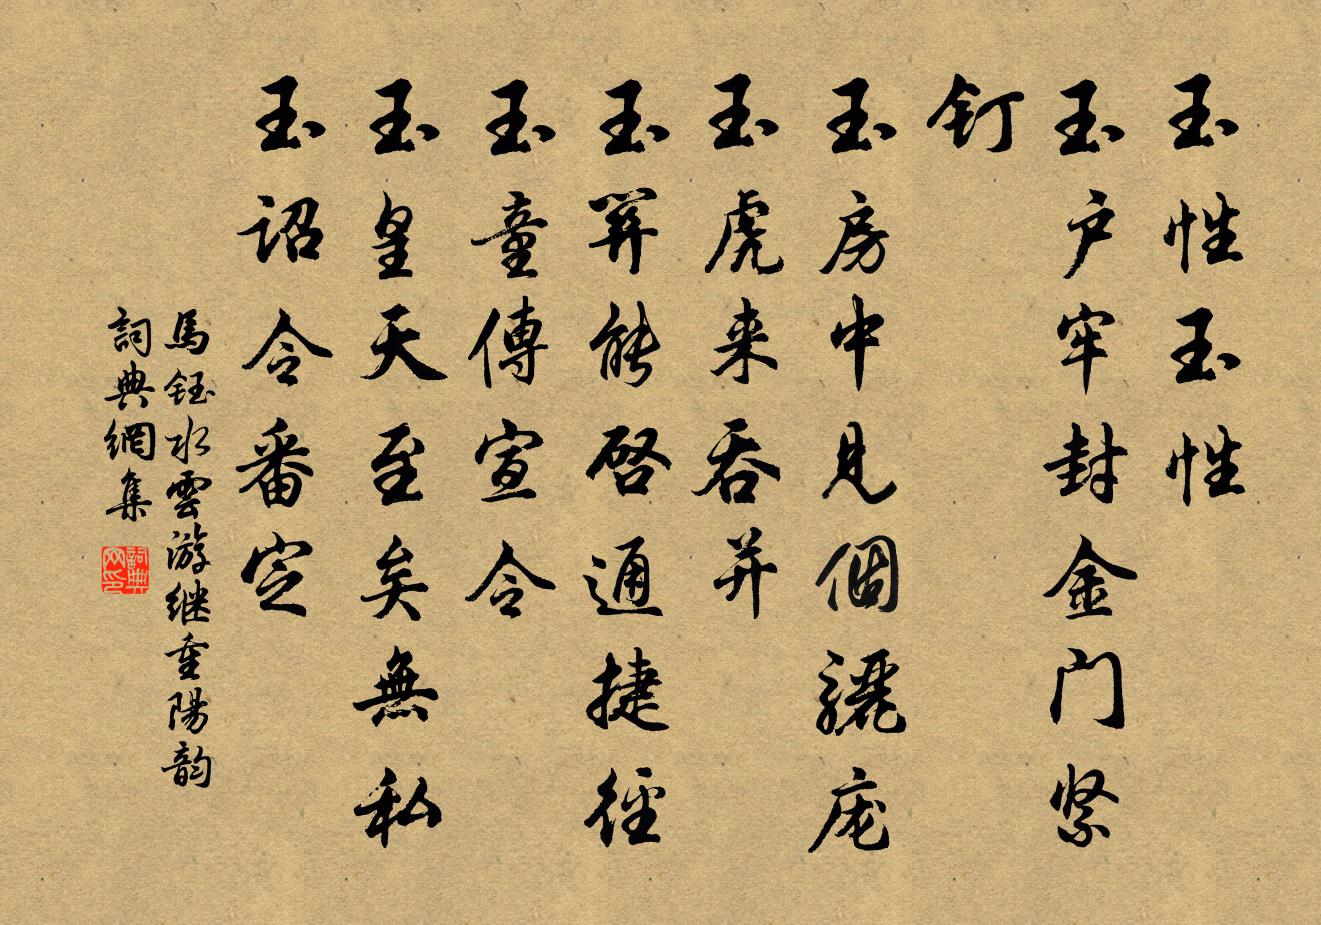 玉性玉性
玉户牢封金门紧
钉
玉房中见個骊庞
玉虎来吞并
玉關能啓通捷徑
玉童傳宣令
玉皇天至矣無私
玉诏令番定
馬鈺水雲游继重陽韵
詞典網集
詞典网印